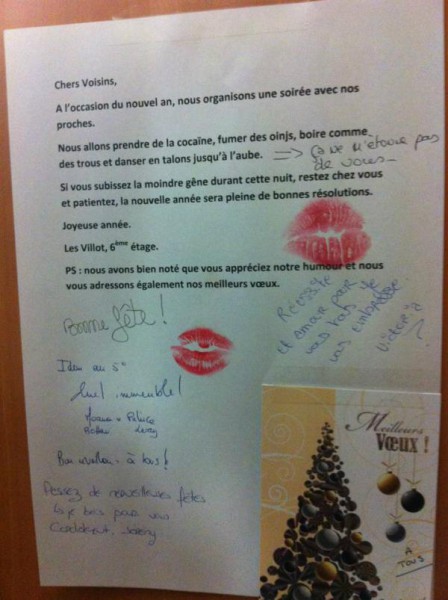 Chers Voisins,
A l'occasion du nouvel an, nous organisons une soirée avec nos
proches.
Nous allons prendre de la cocaïne, fumer des oinjs, boire comme
des trous et danser en talons jusqu'à l'aube.
ça ne m'étonne pas
de vous
Si vous subissez la moindre gêne durant cette nuit, restez chez vous
et patientez, la nouvelle année sera pleine de bonnes résolutions.
Joyeuse année.
Les Villot, 6ème étage.
PS : nous avons bien noté que vous appréciez notre humour et nous
vous adressons également nos meilleurs vœux.
Bonne fête !
Réussite
et amour pour
vous tous. Je
vous embrasse
Idem au 5e
Quel immeuble !
à tous !
Passez de merveilleuses fêtes
pour vous
Cordialement, Jérémy
Meilleurs
Vœux !
A
TOUS